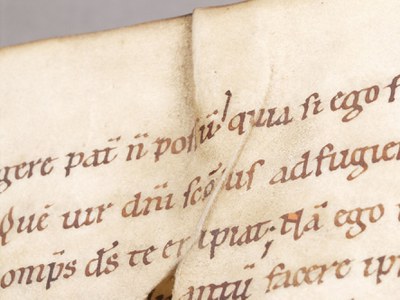 gere pat̄ n̄ possū. quia si ego f
Quē uir dn̄i scōs us adfugien
omp̄s ds̄ te eripiat; Nā ego
antū facere ip